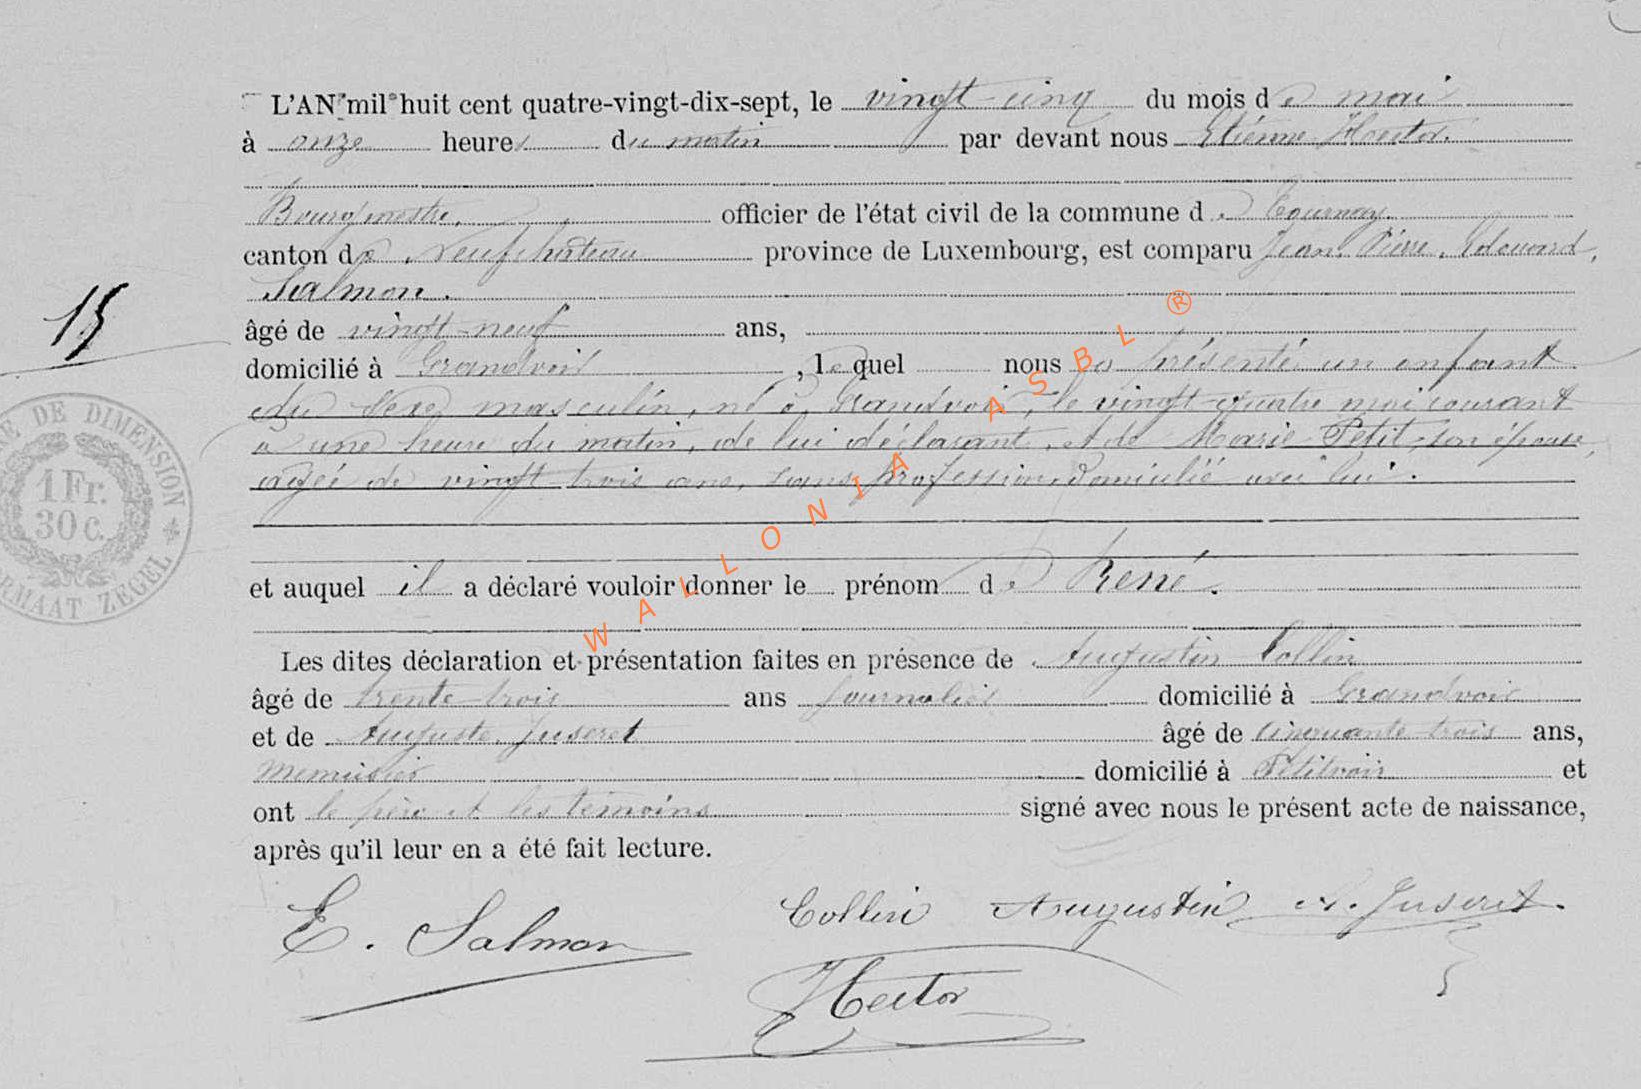 L'AN mil huit cent quatre-vingt-dix-sept, le vingt-cinq du mois de mai
à onze heures du matin par devant nous Etienne Hector.
Bourgmestre, officier de l'état civil de la commune de Tournay.
canton de Neufchâteau province de Luxembourg, est comparu Jean, Pierre, Edouard,
Salmon.
15
âgé de vingt-neuf ans,
domicilié à Grandvoir, lequel nous a présenté un enfant
du sexe masculin, né à Grandvoir, le vingt-quatre mai courant
à une heure du matin, de lui déclarant, et de Marie Petit, son épouse,
agée de vingt-trois ans, sans profession, domicilié avec lui.
DE DIMENSION
1 Fr.
30 c.
ZEGEL
et auquel il a déclaré vouloir donner le prénom de René.
Les dites déclaration et présentation faites en présence de Augustin Collin
âgé de trente-trois ans journalier domicilié à Grandvoir
et de Auguste Juseret âgé de cinquante-trois ans,
menuisier domicilié à Petitvoir et
ont le père et les témoins signé avec nous le présent acte de naissance,
après qu'il leur en a été fait lecture.
E. Salmon Collin Augustin A. Juseret.
Hector
WALLONIA ASBL ®